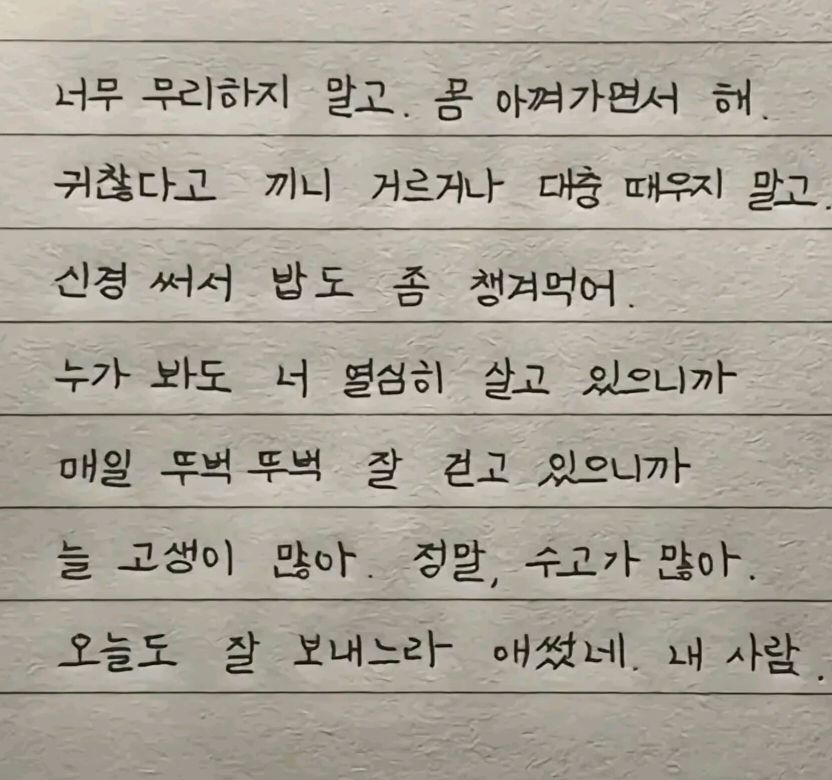 너무 무리하지 말고. 몸 아껴가면서 해.
귀찮다고 끼니 거르거나 대충 때우지 말고.
신경 써서 밥도 좀 챙겨먹어.
누가 봐도 너 열심히 살고 있으니까
매일 뚜벅뚜벅 잘 걷고 있으니까
늘 고생이 많아. 정말, 수고가 많아.
오늘도 잘 보내느라 애썼네. 내 사람.